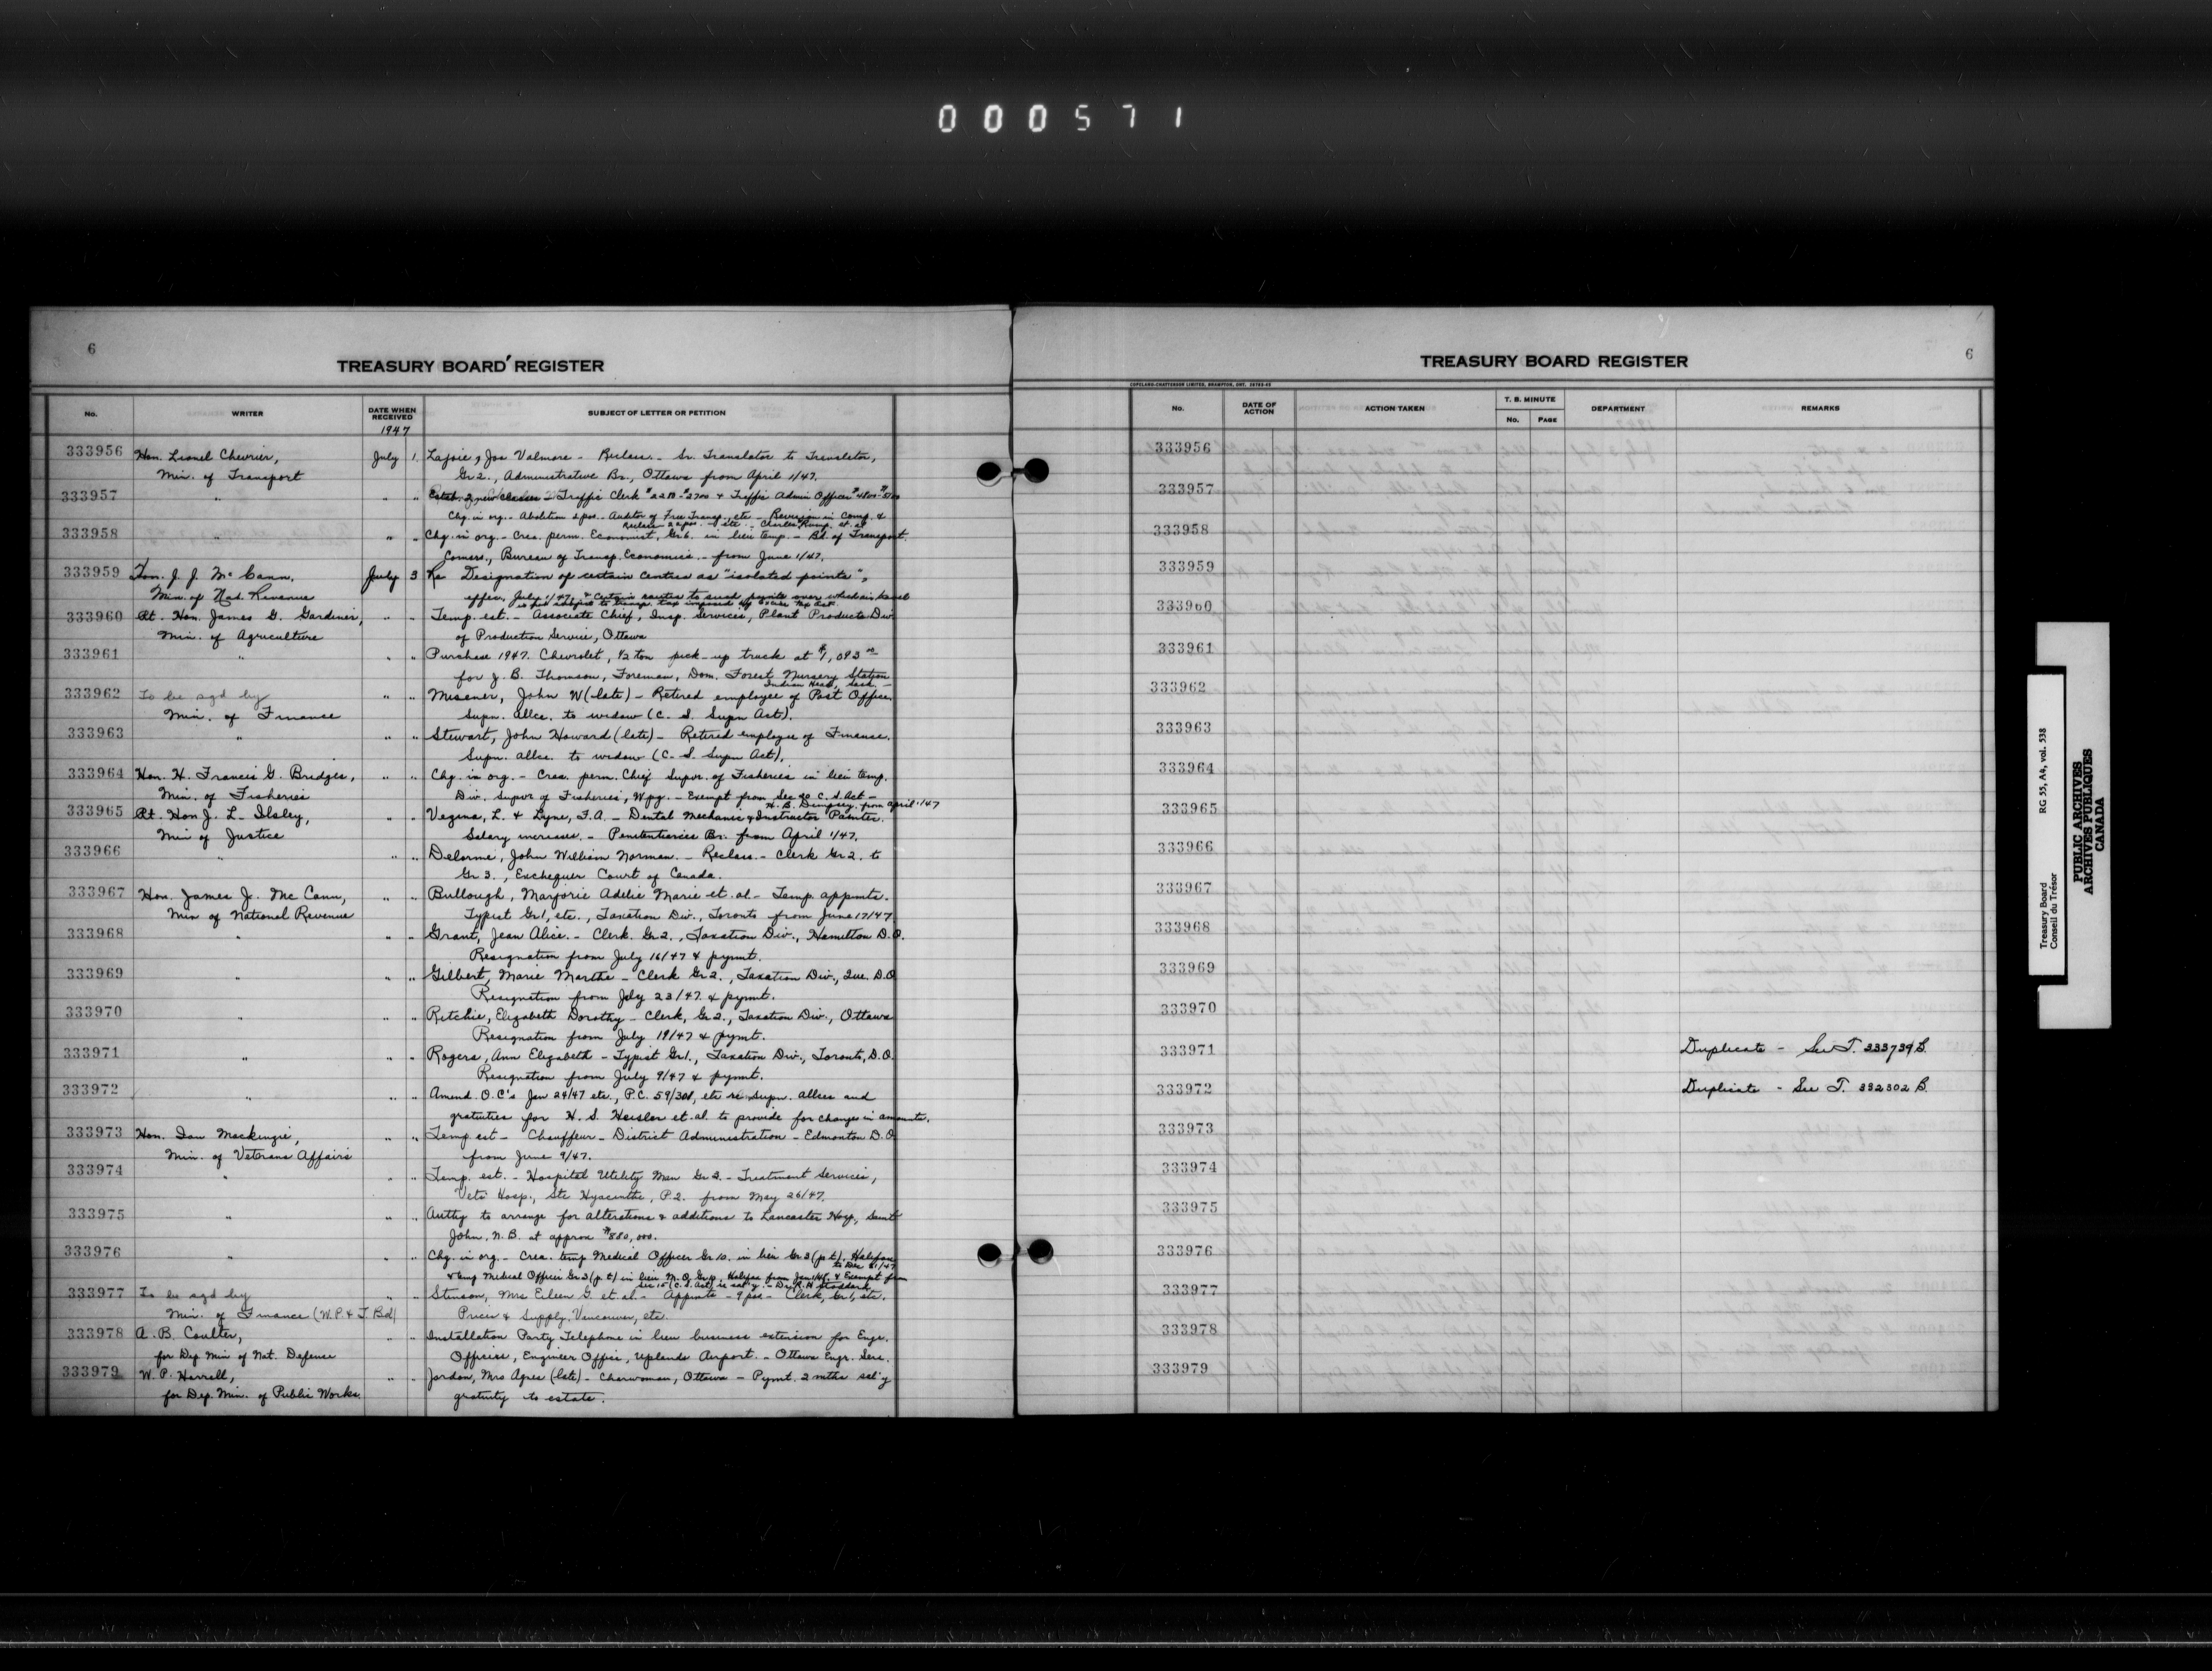 000571
6
TREASURY BOARD REGISTER
No. WRITER DATE WHEN RECEIVED SUBJECT OF LETTER OR PETITION
1947
333956 Hon. Lionel Chevrier, July 1 Lajoie, Jos Valmore - Reclass. - Sr. Translator to Translator,
Min. of Transport Gr 2., Administrative Br., Ottawa from April 1/47.
333957 " " " Estab. 2 new classes - Traffic Clerk & Traffic Admin Officer
Chg. in org. - Abolition 2 pos. - Auditor of Free Transp., etc - Revision in Comp. &
333958 " " " Chg. in org. - Crea. perm. Economist, Gr 6. in lieu temp. - Bd. of Transport.
Comms., Bureau of Transp. Economics. - from June 1/47.
333959 Hon. J. J. McCann, July 3 Re Designation of certain centres as "isolated points",
Min. of Nat. Revenue effec. July 1/47, & certain routes to such points over which air travel
is not subject to transp. tax imposed by Excise Tax Act.
333960 Rt. Hon. James G. Gardiner, " " Temp. est. - Associate Chief, Insp. Services, Plant Products Div.
Min. of Agriculture of Production Service, Ottawa
333961 " " " Purchase 1947 Chevrolet, 1/2 ton pick-up truck at $1,093.00
for J. B. Thomson, Foreman, Dom. Forest Nursery Station
Indian Head, Sask. -
333962 To be sgd by " " Misener, John W (late) - Retired employee of Post Office.
Min. of Finance Supn. allce. to widow (C. S. Supn Act).
333963 " " " Stewart, John Howard (late) - Retired employee of Finance.
Supn. allce. to widow (C. S. Supn Act).
333964 Hon. H. Francis G. Bridges, " " Chg. in org. - Crea. perm. Chief Supvr. of Fisheries in lieu temp.
Min. of Fisheries Div. Supvr of Fisheries, Wpg. - Exempt from Sec 20 C. S. Act -
H. B. Dempsey, from April 1/47
333965 Rt. Hon J. L. Ilsley, " " Vezina, L. & Lyne, F.A. - Dental Mechanic & Instructor Painter.
Min of Justice Salary increases. - Penitentiaries Br. from April 1/47.
333966 " " " Delorme, John William Norman. - Reclass. - Clerk Gr 2. to
Gr 3., Exchequer Court of Canada.
333967 Hon. James J. McCann, " " Bullough, Marjorie Adelie Marie et. al. - Temp. appmts.
Min of National Revenue Typist Gr 1, etc., Taxation Div., Toronto from June 17/47
333968 " " " Grant, Jean Alice. - Clerk. Gr 2., Taxation Div., Hamilton D.O.
Resignation from July 16/47 & pymt.
333969 " " " Gilbert, Marie Marthe - Clerk Gr 2., Taxation Div., Que. D.O
Resignation from July 23/47. & pymt.
333970 " " " Ritchie, Elizabeth Dorothy - Clerk, Gr 2., Taxation Div., Ottawa
Resignation from July 19/47 & pymt.
333971 " " " Rogers, Ann Elizabeth - Typist Gr 1., Taxation Div., Toronto, D.O.
Resignation from July 9/47 & pymt.
333972 " " " Amend. O.C's Jan 24/47 etc., P.C. 59/301, etc re Supn. allces and
gratuities for H. S. Heisler et. al. to provide for changes in amounts.
333973 Hon. Ian Mackenzie, " " Temp. est - Chauffeur - District Administration - Edmonton D.O.
Min. of Veterans Affairs from June 9/47.
333974 " " " Temp. est. - Hospital Utility Man Gr 2. - Treatment Services,
Vets' Hosp., Ste Hyacinthe, P.Q. from May 26/47.
333975 " " " Authy to arrange for alterations & additions to Lancaster Hosp., Saint
John, N.B. at approx $880,000.
333976 " " " Chg. in org. - Crea. temp Medical Officer Gr 10. in lieu Gr 3 (p.t.), Halifax
to Dec 31/47
& temp Medical Officer Gr 3 (p.t.) in lieu M.O. Gr 10, Halifax from Jan 1/48. & Exempt from
Sec 15 (C.S. Act) is sal'y. - Dr. R. H. Stoddard
333977 To be sgd by " " Stinson, Mrs Eileen G. et. al. - Appmts - 9 pos - Clerk, Gr 1, etc.
Min. of Finance (W.P. & T. Bd) Prices & Supply, Vancouver, etc.
333978 A. B. Coulter, " " Installation Party Telephone in lieu business extension for Engr.
for Dep Min of Nat. Defence Officers, Engineer Office, Uplands Airport. - Ottawa Engr. Serv.
333979 W. P. Harrell, " " Jordan, Mrs Agnes (late) - Charwoman, Ottawa - Pymt. 2 mths sal'y
for Dep. Min. of Public Works. gratuity to estate.
6
TREASURY BOARD REGISTER
COPELAND-CHATTERSON LIMITED, BRAMPTON, ONT.
No. DATE OF ACTION ACTION TAKEN T. B. MINUTE No. PAGE DEPARTMENT REMARKS
333956
333957
333958
333959
333960
333961
333962
333963
333964
333965
333966
333967
333968
333969
333970
333971 Duplicate - See T. 333739 B.
333972 Duplicate - See T. 332302 B.
333973
333974
333975
333976
333977
333978
333979
Treasury Board RG 55, A4, vol. 538
Conseil du Trésor
PUBLIC ARCHIVES
ARCHIVES PUBLIQUES
CANADA